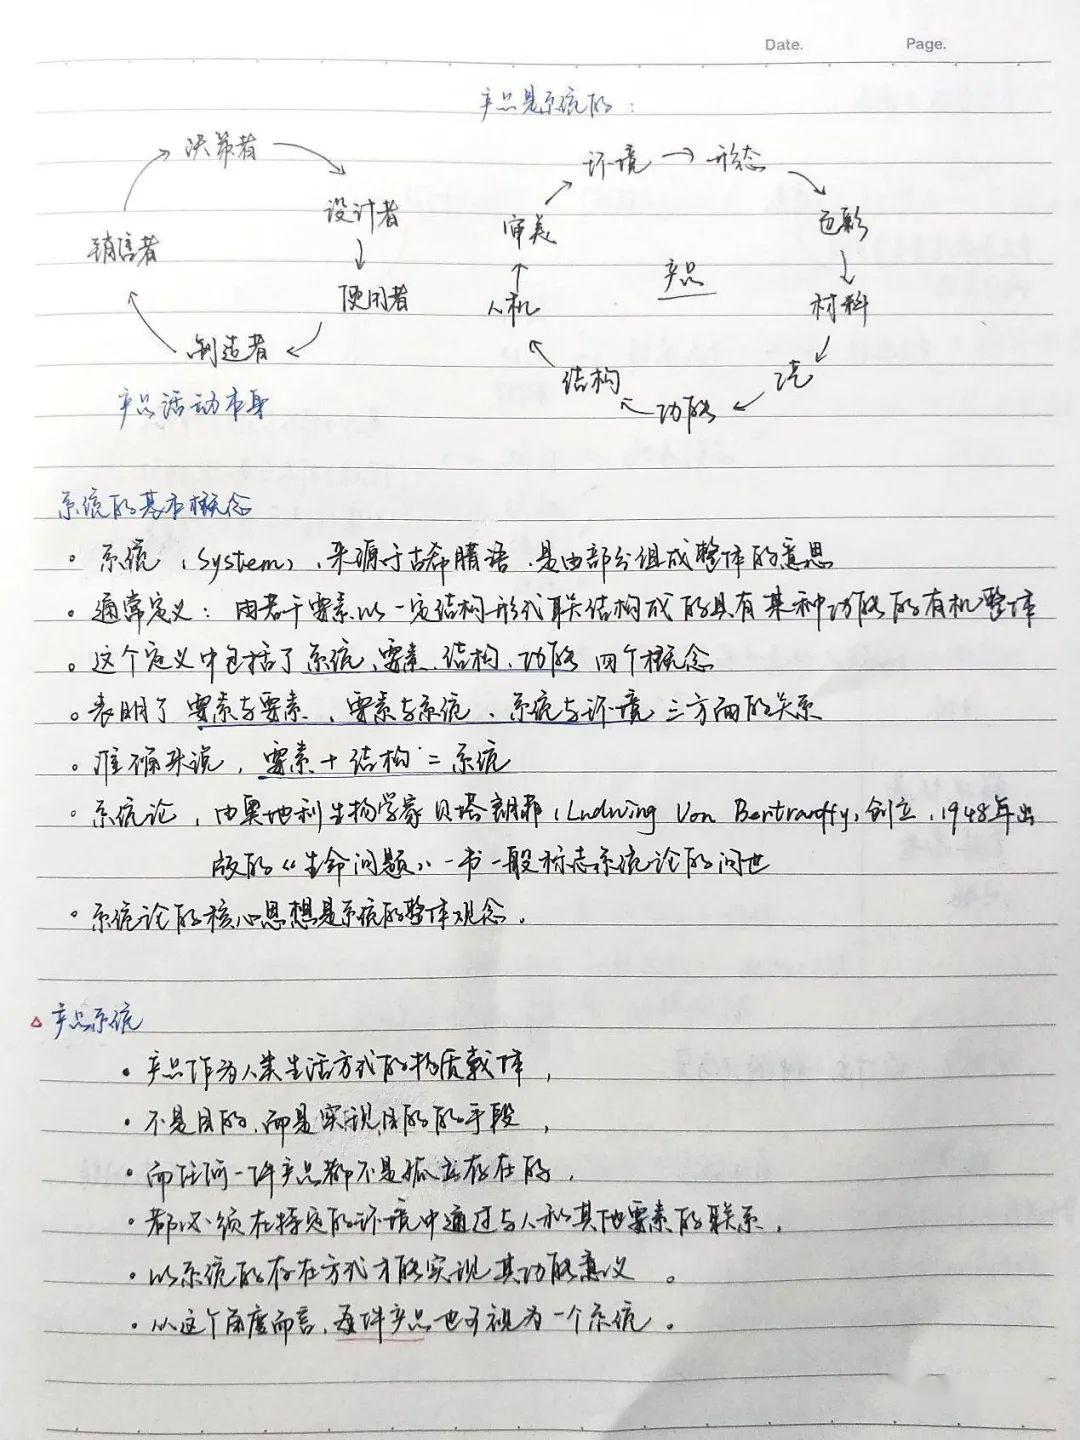 Date. Page.
产品是系统的：
决策者
设计者
使用者
制造者
销售者
产品活动本身
环境
形态
色彩
材料
功能
结构
人机
审美
产品
系统的基本概念
。系统（System），来源于古希腊语，是由部分组成整体的意思
。通常定义：由若干要素以一定结构形式联结构成的具有某种功能的有机整体
。这个定义中包括了系统、要素、结构、功能 四个概念
。表明了要素与要素、要素与系统、系统与环境三方面的关系
。准确来说，要素+结构=系统
。系统论，由奥地利生物学家贝塔朗菲（Ludwing Von Bertranffy）创立，1948年出
版的《生命问题》一书一般标志系统论的问世
。系统论的核心思想是系统的整体观念。
△产品系统
·产品作为人类生活方式的物质载体，
·不是目的，而是实现目的的手段，
·而任何一件产品都不是孤立存在的，
·都必须在特定的环境中通过与人和其他要素的联系，
·以系统的存在方式才能实现其功能意义。
·从这个角度而言，每件产品也可视为一个系统。